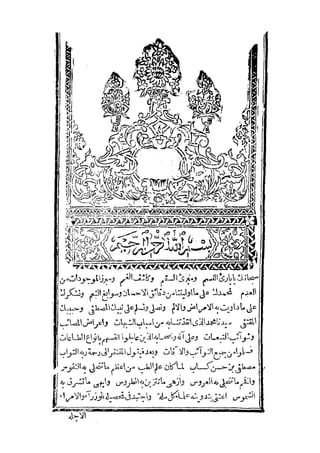 بسم الله الرحمن الرحيم
سبحانك يا بارئ النسم ومبرئ السقم وكاشف الغمم ومبرز الموجودات من
العدم نحمدك على ما اوليتنا من دقائق الاحسان وسوابغ النعم ونشكرك
على ما داويت به الامراض والالم ونصلي ونسلم على نبيك المصطفى وحبيبك
المقتفى سيدنا محمد الذي انقذتنا به من اسباب الشبهات واعراض المصائب
وشوائب التبعات وعلى آله واصحابه الذين عالجوا انفسهم بانواع الطاعات
فسلموا من جميع النوائب والآفات وبعد فيقول المفتقر الى رحمة ربه التواب
مصطفى بن حسن كساب لما كان علم الطب من اعظم ما تتحلى به النفوس
وافخم ما تتجلى به العروس وازهى ما تتزين به الطروس وابهى ما تشرق به
الشموس اعتنى بتدوينه علماء كل ملة واجتهد في تحصيله الوزراء والامراء
الاجلة